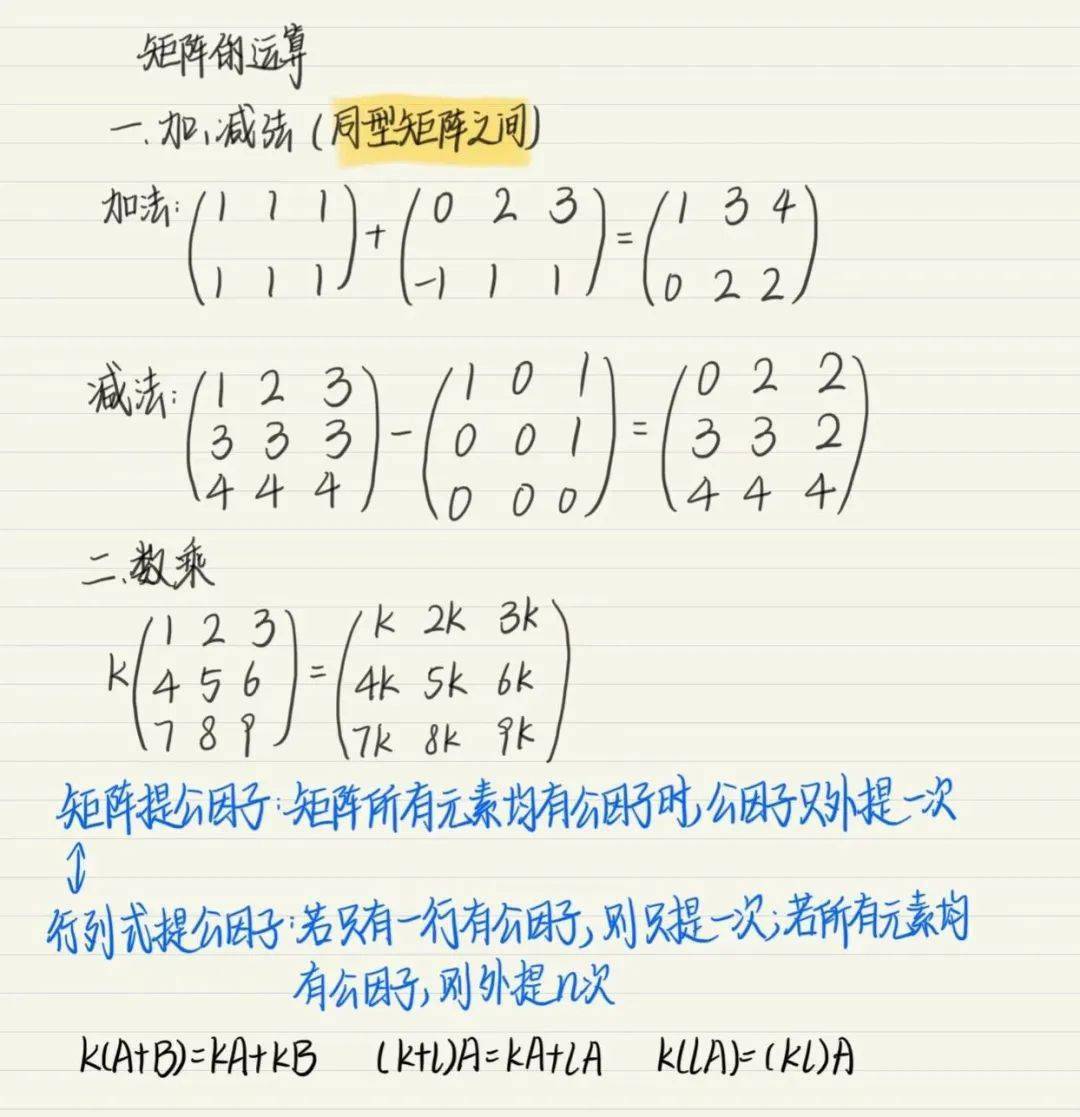 矩阵的运算
一.加、减法(同型矩阵之间)
加法:(1 1 1
1 1 1)+(0 2 3
-1 1 1)=(1 3 4
0 2 2)
减法:(1 2 3
3 3 3
4 4 4)-(1 0 1
0 0 1
0 0 0)=(0 2 2
3 3 2
4 4 4)
二.数乘
k(1 2 3
4 5 6
7 8 9)=(k 2k 3k
4k 5k 6k
7k 8k 9k)
矩阵提公因子:矩阵所有元素均有公因子时,公因子只外提一次
↕
行列式提公因子:若只有一行有公因子,则只提一次;若所有元素均
有公因子,则外提n次
k(A+B)=kA+kB (k+l)A=kA+lA k(lA)=(kl)A